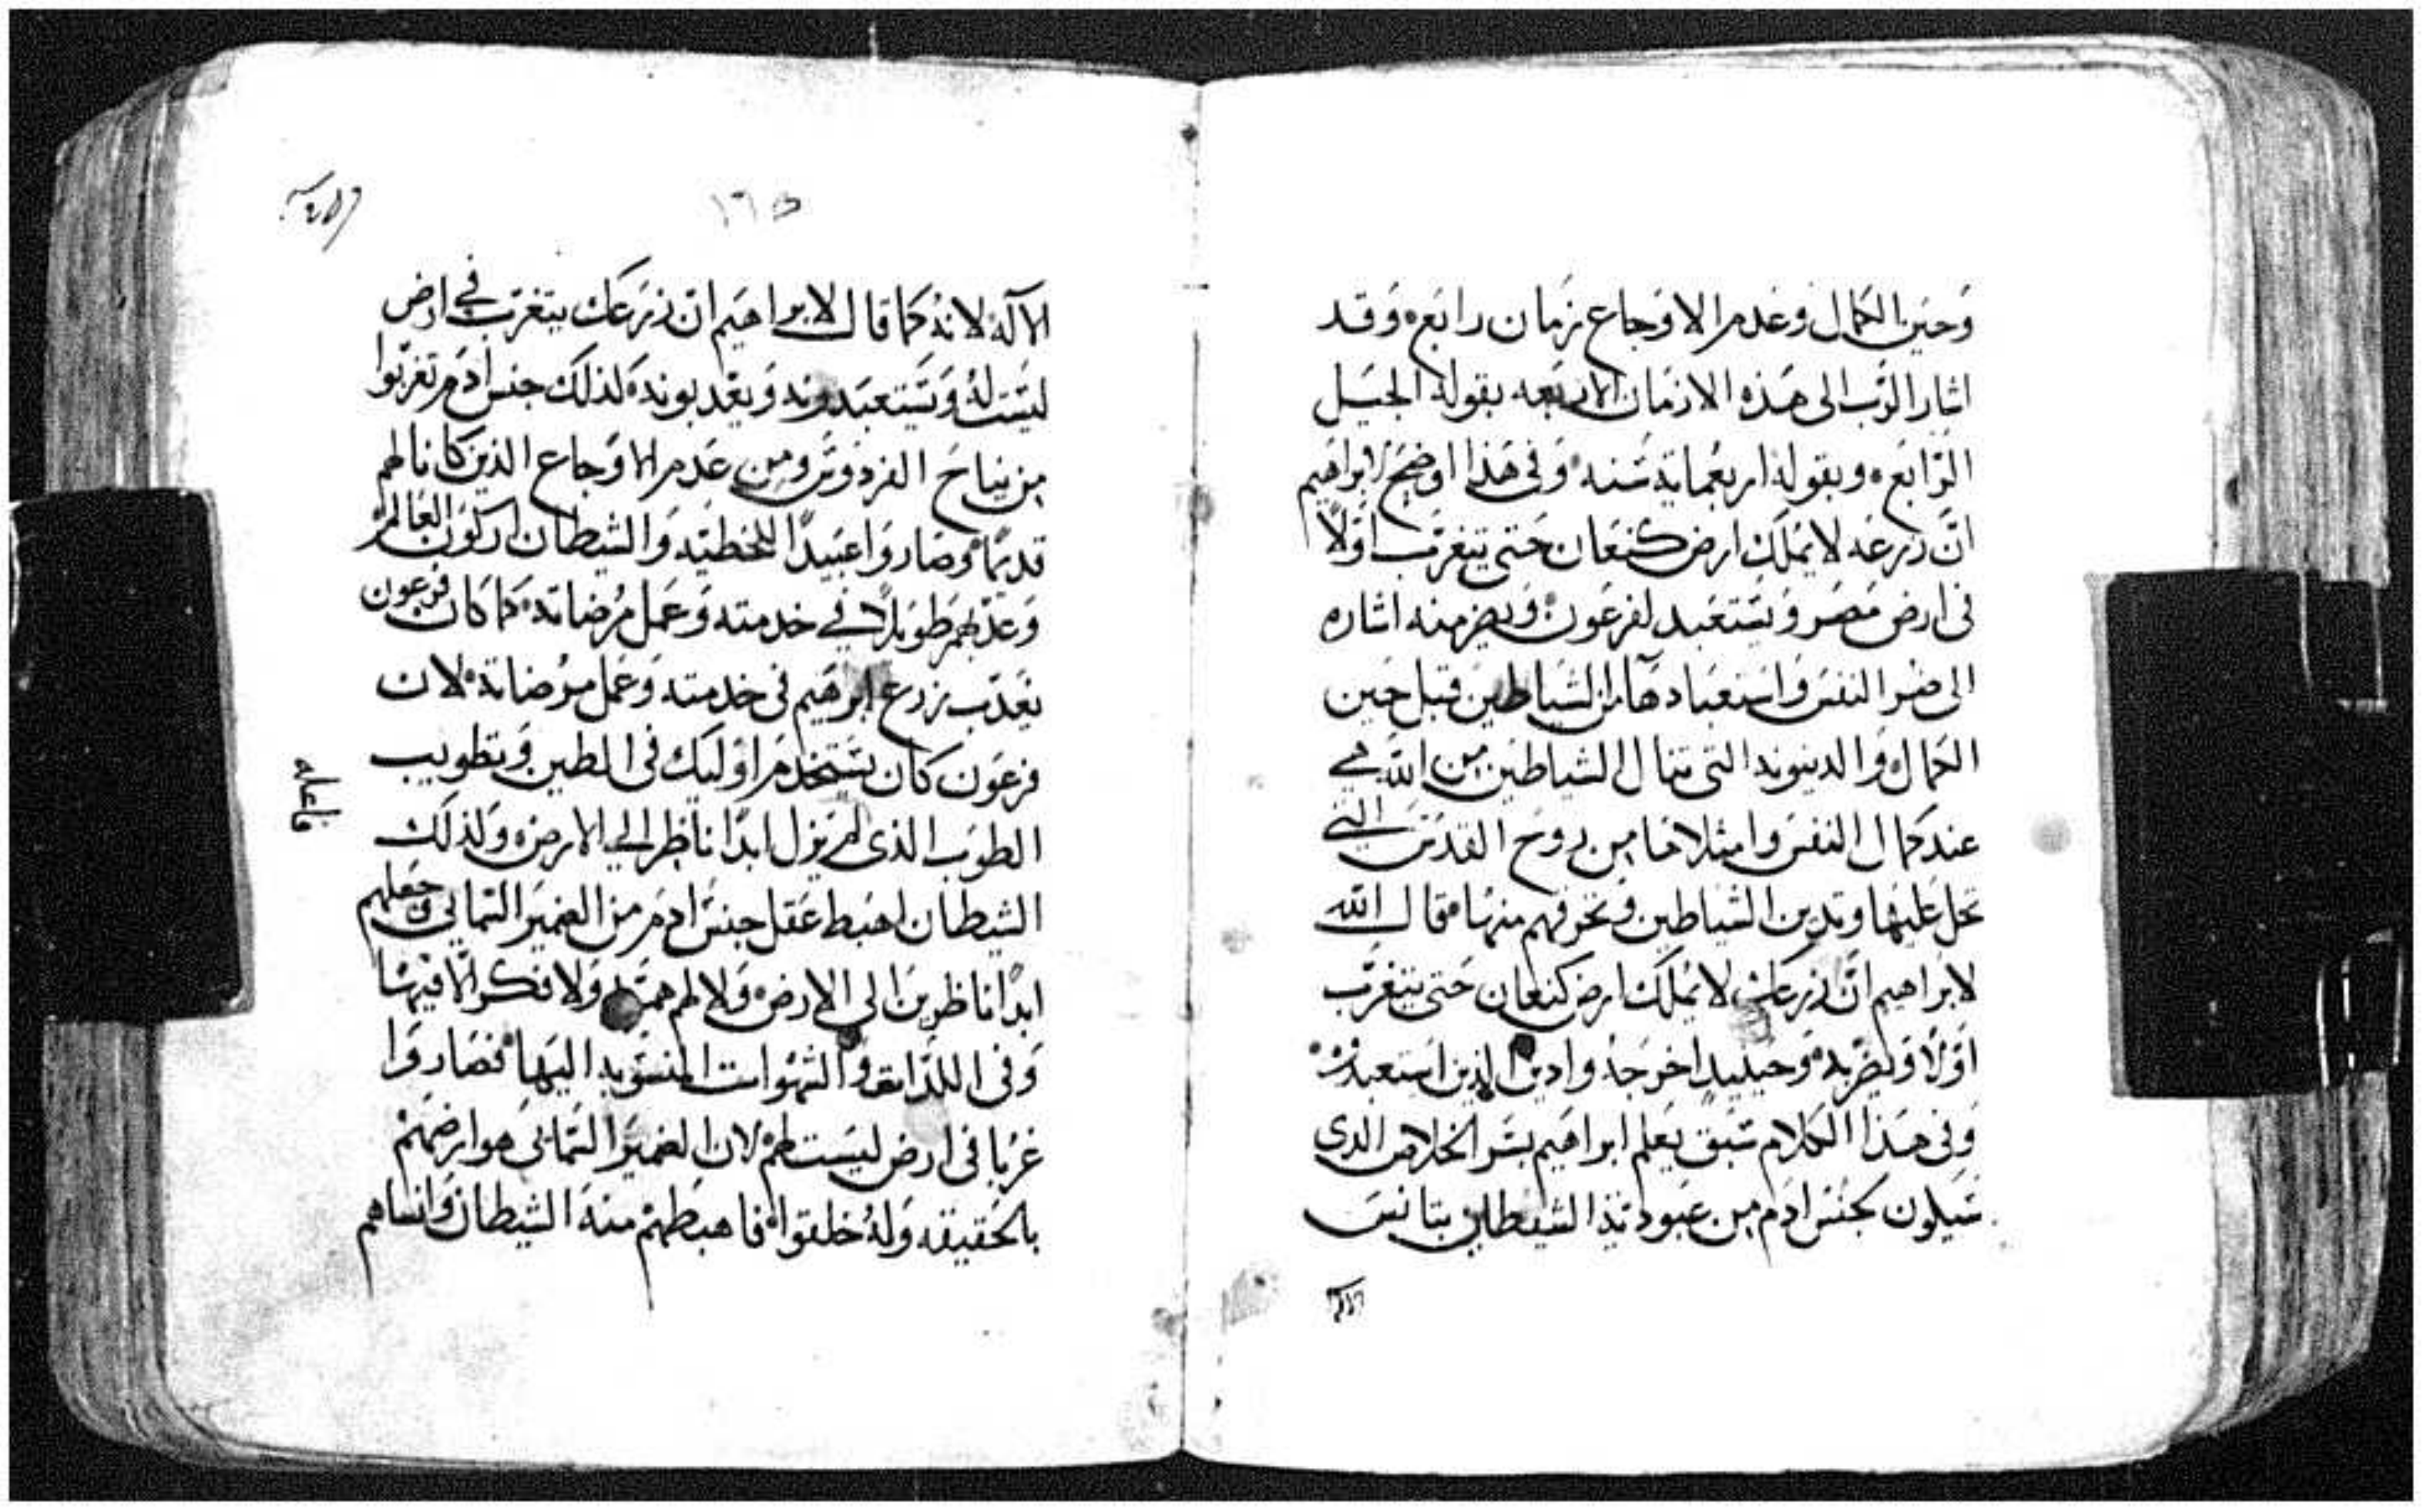 وحين الكمال وعدم الاوجاع زمان رابع وقد
اشار الرب الى هذه الازمان الاربعه بقوله الجيل
الرابع وبقوله اربعماية سنه وفي هذا اوضح لابراهيم
ان زرعه لا يملك ارض كنعان حتى يتغرب اولاً
في ارض مصر ويستعبد لفرعون ويضر منه اشاره
الى ضر النفس واستعبادها من الشياطين قبل حين
الكمال والدينونه التي تنال الشياطين من الله هي
عند كمال النفس وامتلاها من روح القدس التي
تحل عليها وتدين الشياطين وتحرقهم منها قال الله
لابراهيم ان زرعك لا يملك ارض كنعان حتى يتغرب
اولا وحينيد اخرجه وادين الذين استعبدوه
وفي هذا الكلام سبق يعلم ابراهيم بسر الخلاص الدي
سيكون لجنس ادم من عبودية الشيطان بتانس
الاله
١٦٥
الاله لانه كما قال لابراهيم ان زرعك يتغرب في ارض
ليست له ويستعبدونه ويعدبونه لذلك جنس ادم تغربوا
من نياح الفردوس ومن عدم الاوجاع الذين كانا لهم
قديماً وصاروا عبيداً للخطيه والشيطان اركون العالم
وعذبهم طويلاً في خدمته وعمل مرضاته كما كان فرعون
يعذب زرع ابرهيم في خدمته وعمل مرضاته لان
فرعون كان يستخدم اوليك في الطين وتطويب
الطوب الذي لم يزل ابداً ناظر الي الارض ولذلك
فاعله
الشيطان اهبط عقل جنس ادم من الضمير السمايي وجعلهم
ابداً ناظرين الى الارض ولا لهم همه ولا فكر الا فيها
وفي اللذات والشهوات المنسوبه اليها فصاروا
غربا في ارض ليست لهم لان الضمير السمايي هو ارضهم
بالحقيقه وله خلقوا فاهبطهم منه الشيطان وانساهم